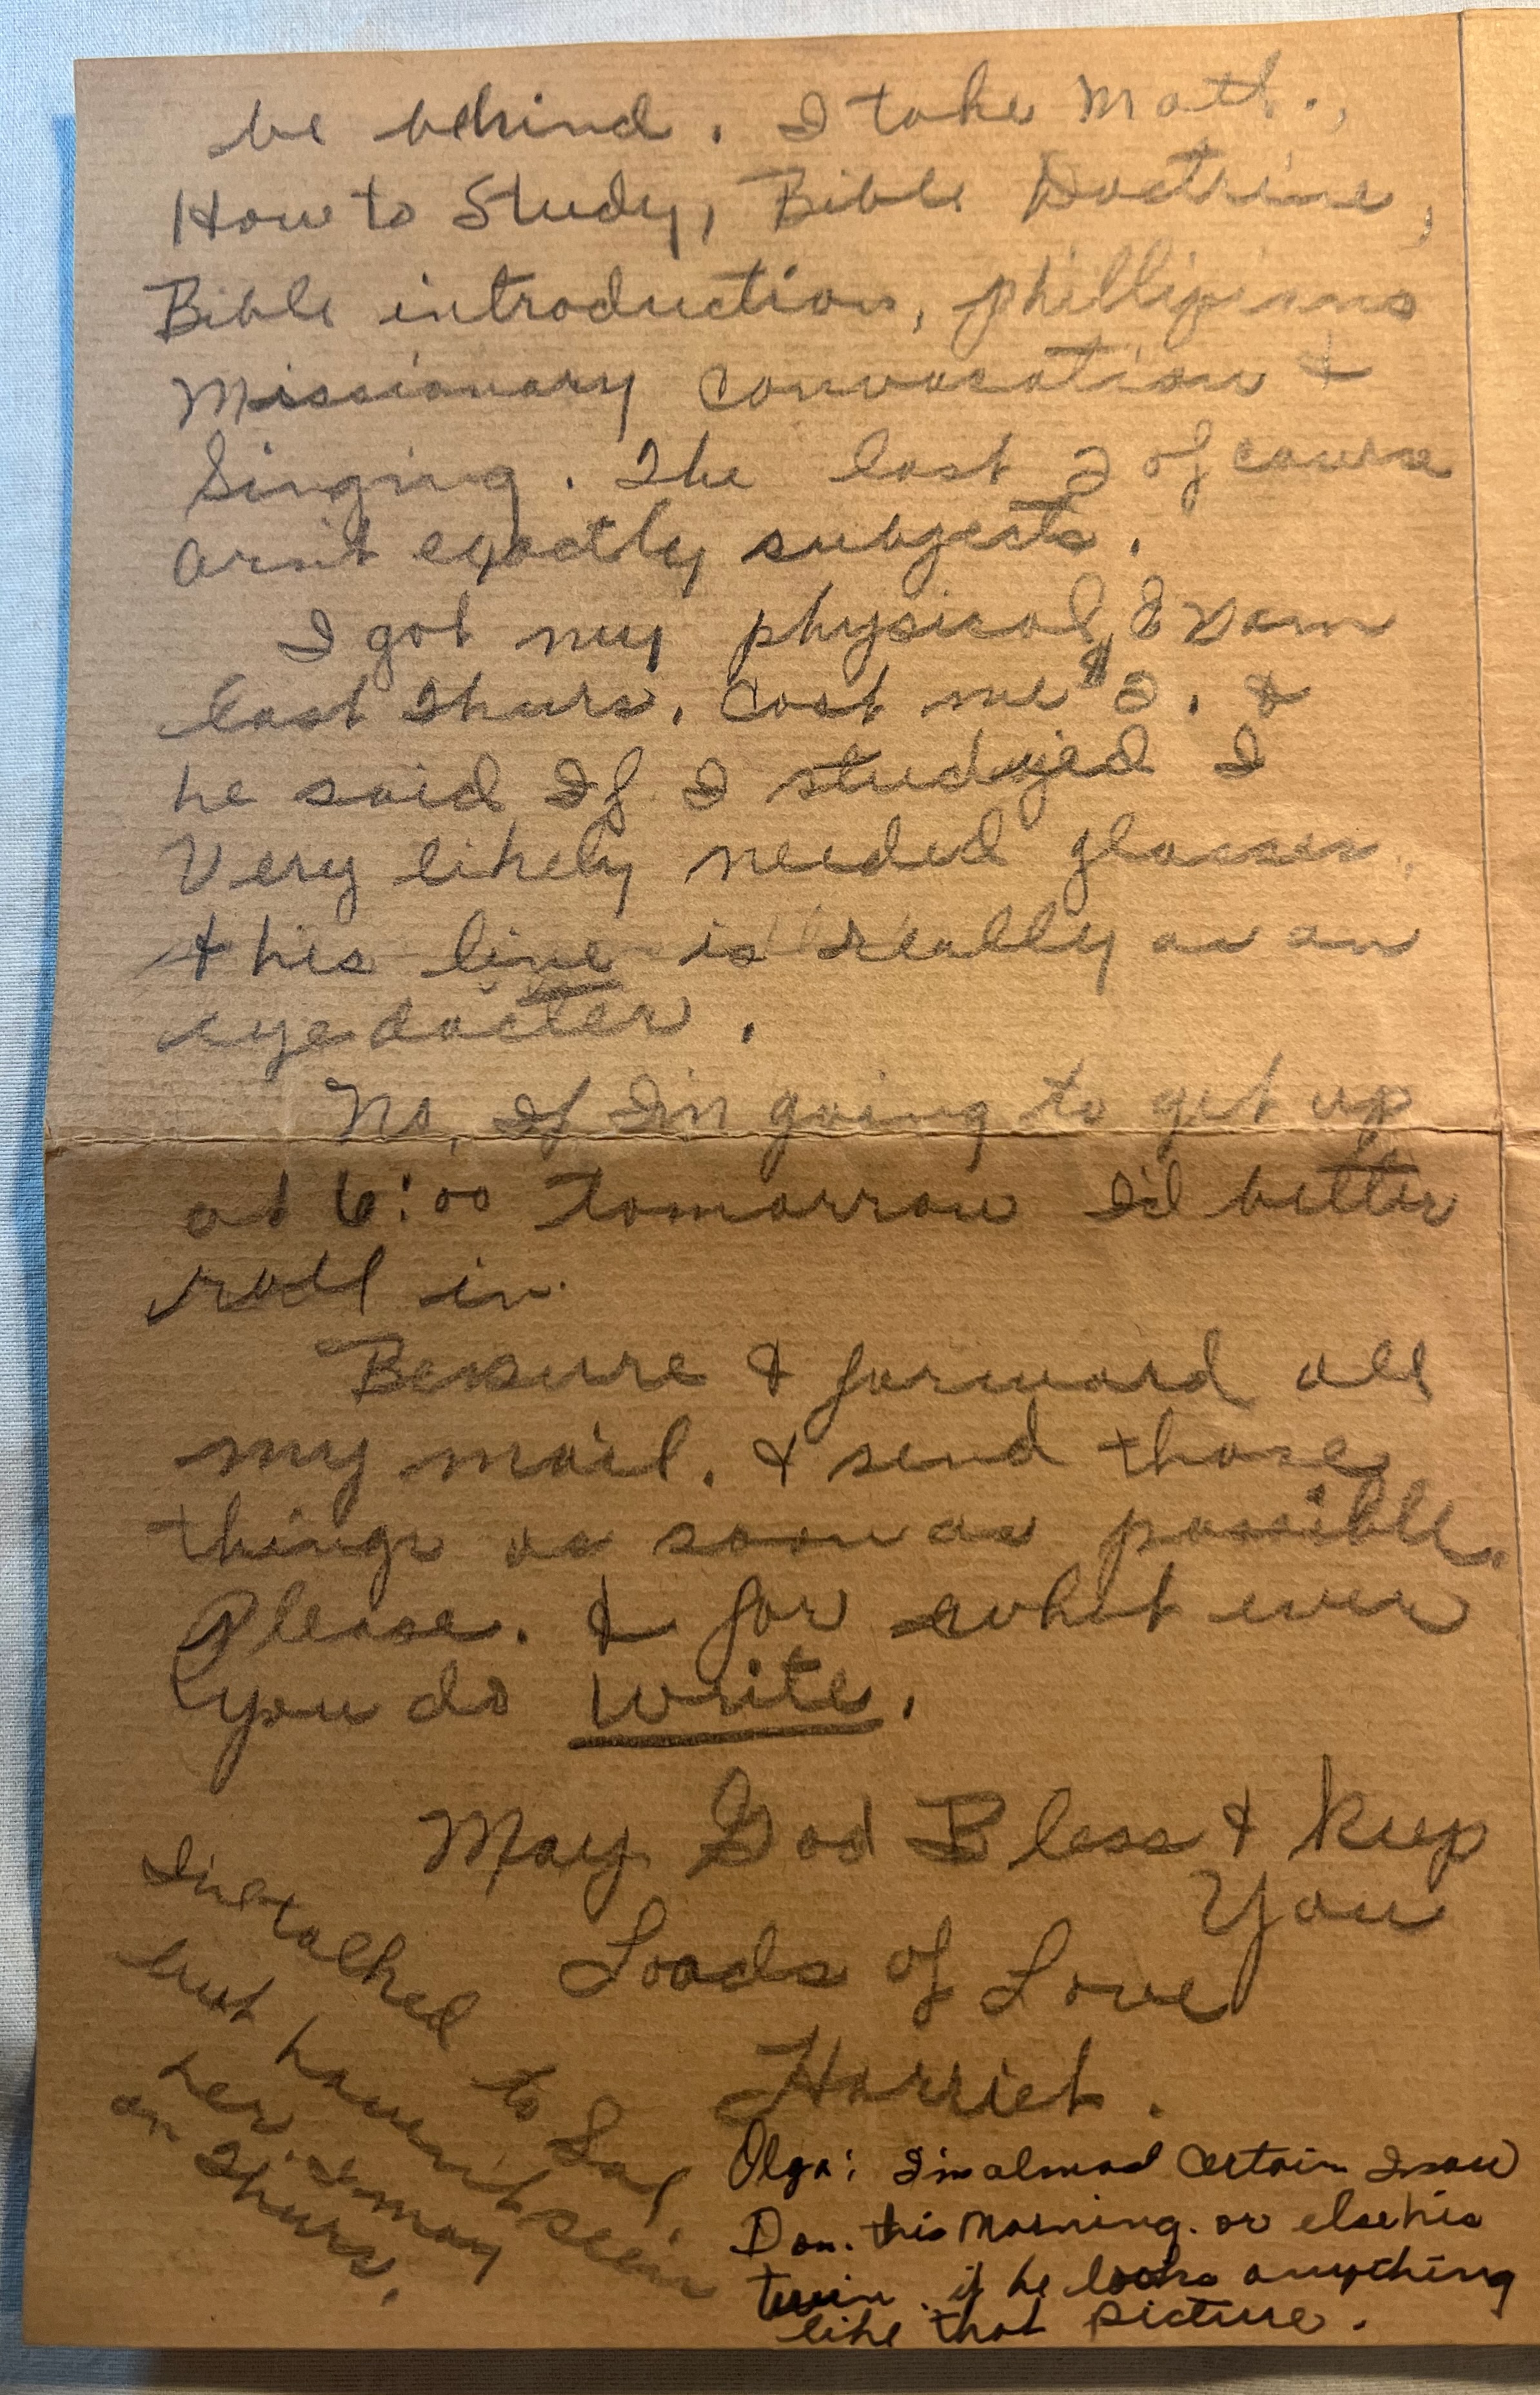 be behind. I take Math.,
How to Study, Bible Doctrine,
Bible introduction, phillipians
Missionary Convocation &
Singing. The last 2 of course
arn't exactly subjects.
I got my physical Exam
last Thurs. Cost me $2. &
he said If I studyied I
Very likely needed glasses.
& his line is really as an
eye docter.
No, If I'm going to get up
at 6:00 tomorrow I'd better
roll in.
Be sure & forward all
my mail. & send those
things as soon as possible.
Please. & for what ever
you do write.
May God Bless & Keep
You
Loads of Love
Harriet.
I've talked to Sal,
but haven't seen
her. I may
on Thurs.
Olga: I'm almost certain I saw
Don. this Morning. or else his
twin. if he looks anything
like that picture.